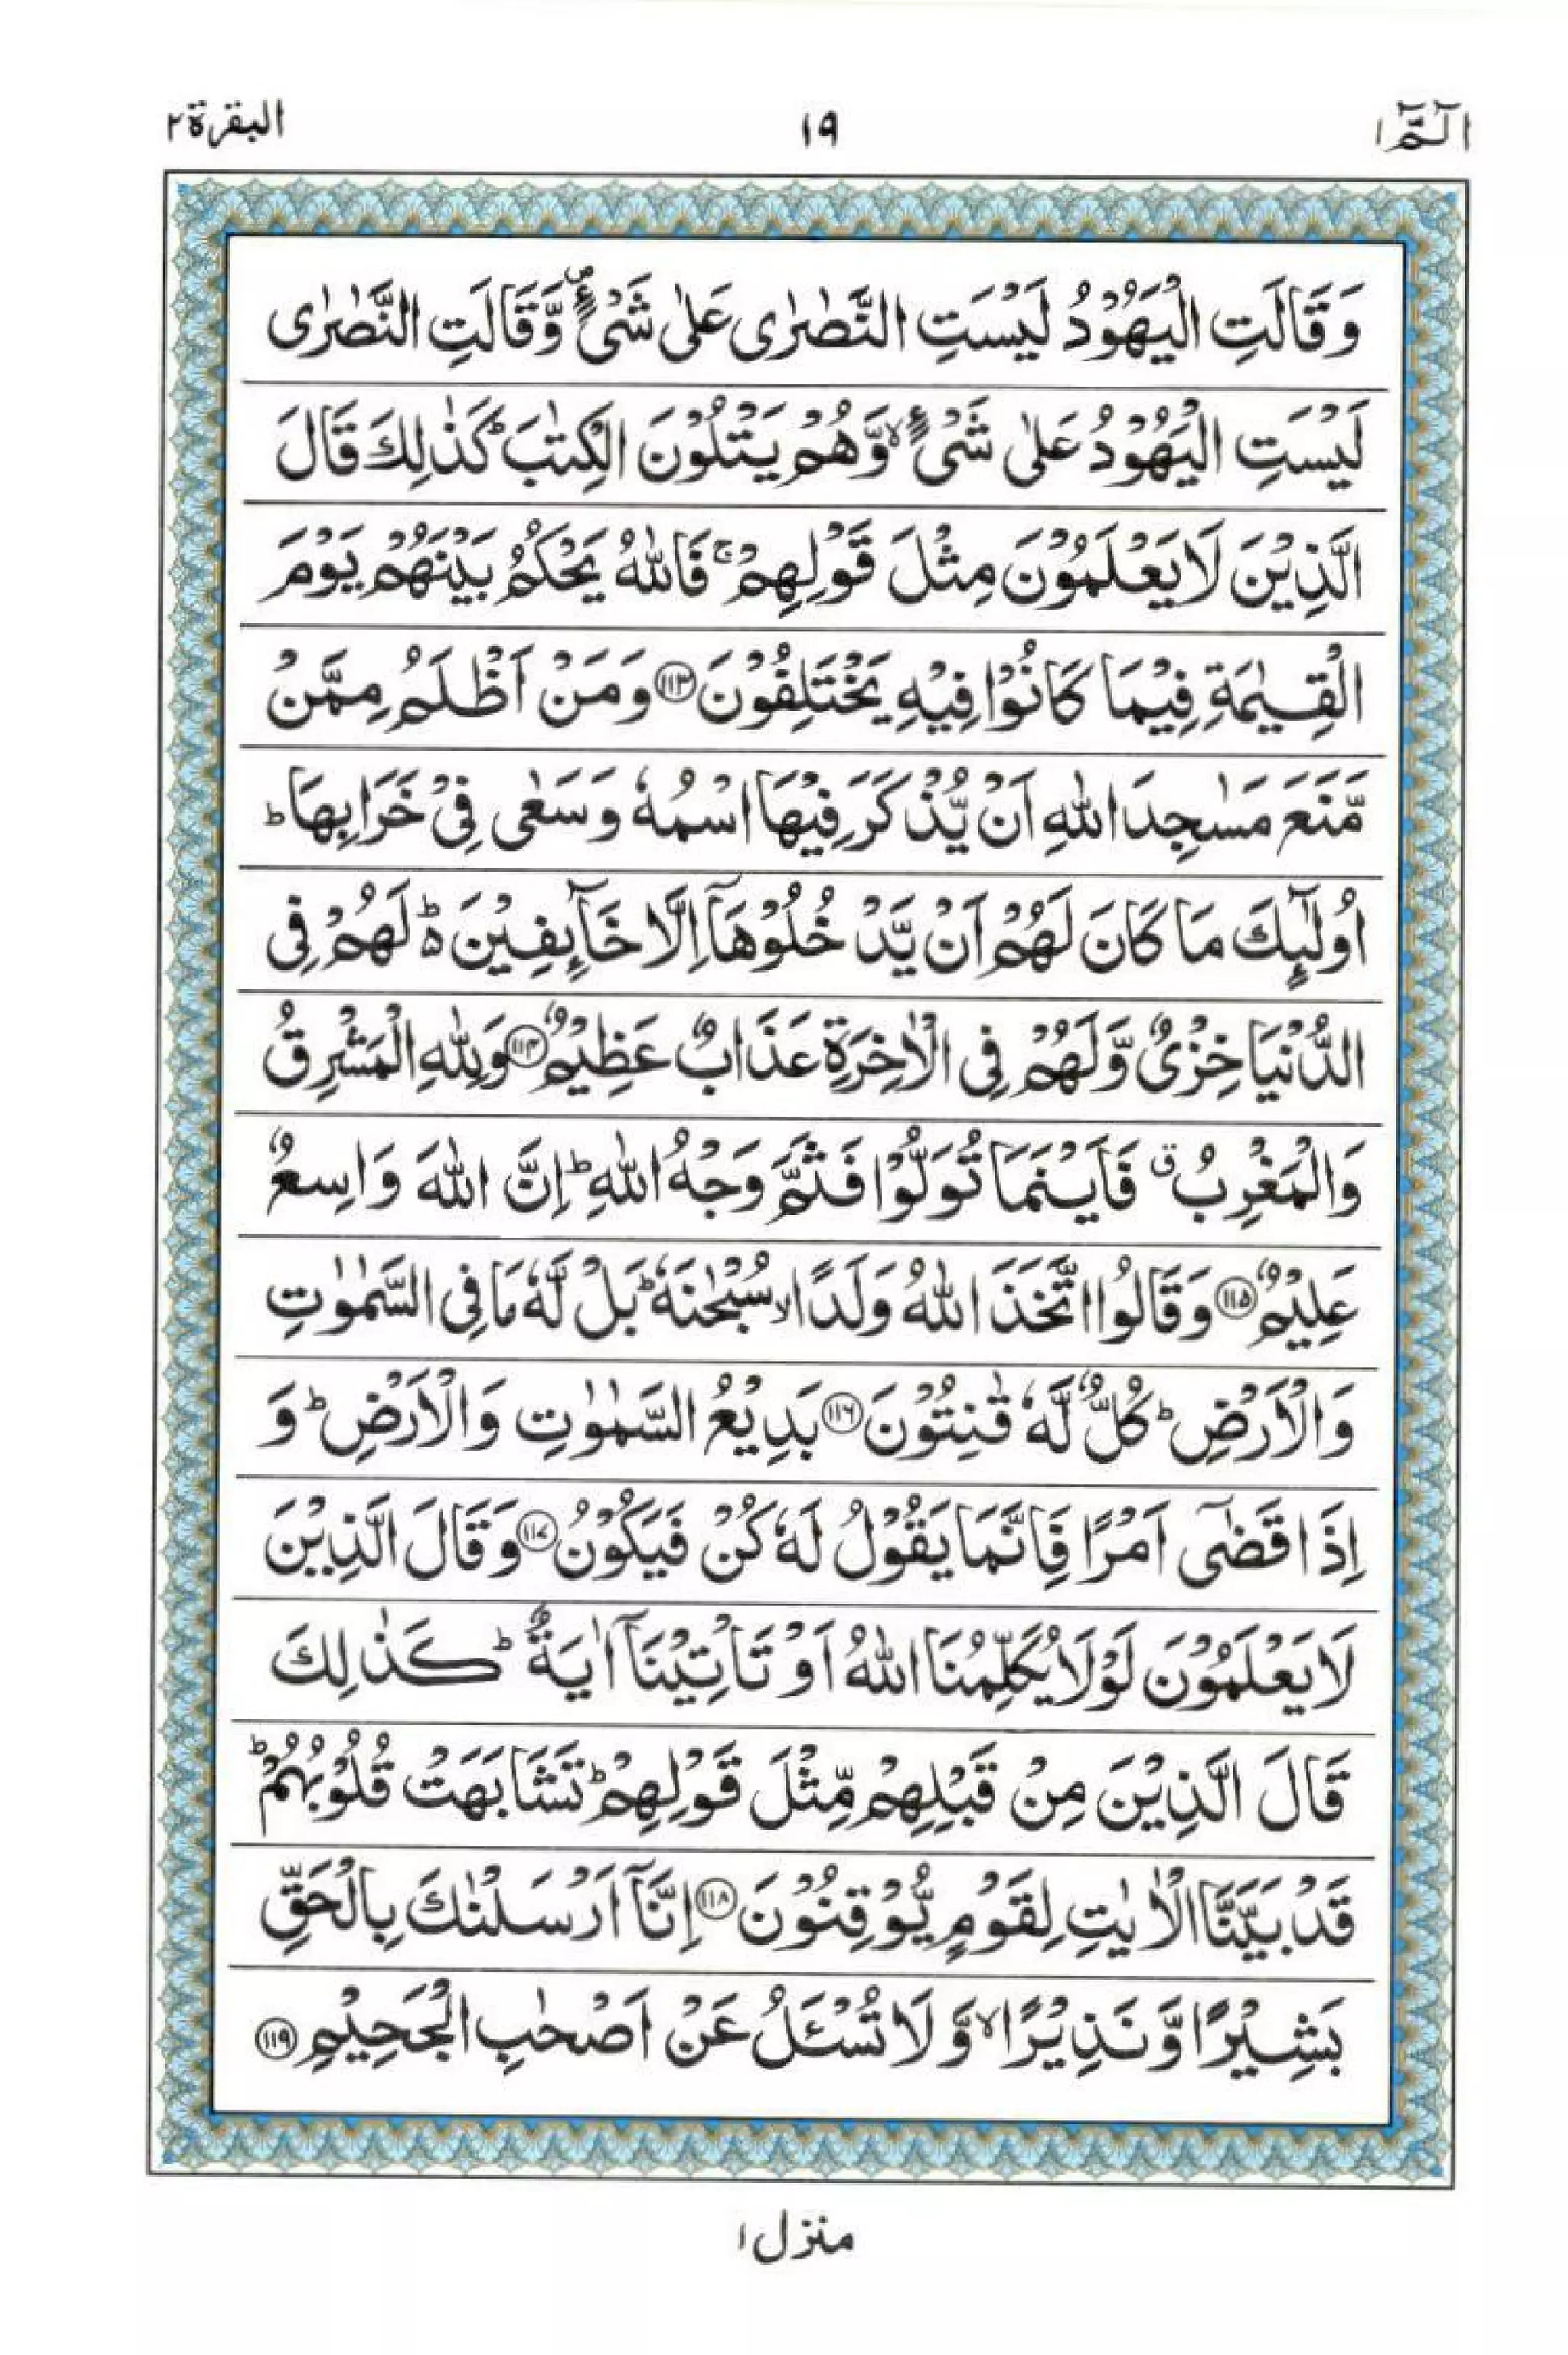 الٓمّٓ ١
١٩
البقرة ٢
وَقَالَتِ الْيَهُوْدُ لَيْسَتِ النَّصٰرٰى عَلٰى شَىْءٍ ۪ وَّقَالَتِ النَّصٰرٰى
لَيْسَتِ الْيَهُوْدُ عَلٰى شَىْءٍ ۙ وَّهُمْ يَتْلُوْنَ الْكِتٰبَ ؕ كَذٰلِكَ قَالَ
الَّذِيْنَ لَا يَعْلَمُوْنَ مِثْلَ قَوْلِهِمْ ۚ فَاللّٰهُ يَحْكُمُ بَيْنَهُمْ يَوْمَ
الْقِيٰمَةِ فِيْمَا كَانُوْا فِيْهِ يَخْتَلِفُوْنَ ﴿١١٣﴾ وَمَنْ اَظْلَمُ مِمَّنْ
مَّنَعَ مَسٰجِدَ اللّٰهِ اَنْ يُّذْكَرَ فِيْهَا اسْمُهٗ وَسَعٰى فِىْ خَرَابِهَا ؕ
اُولٰٓئِكَ مَا كَانَ لَهُمْ اَنْ يَّدْخُلُوْهَآ اِلَّا خَآئِفِيْنَ ؕ۬ لَهُمْ فِى
الدُّنْيَا خِزْىٌ وَّلَهُمْ فِى الْاٰخِرَةِ عَذَابٌ عَظِيْمٌ ﴿١١٤﴾ وَلِلّٰهِ الْمَشْرِقُ
وَالْمَغْرِبُ ۗ فَاَيْنَمَا تُوَلُّوْا فَثَمَّ وَجْهُ اللّٰهِ ؕ اِنَّ اللّٰهَ وَاسِعٌ
عَلِيْمٌ ﴿١١٥﴾ وَقَالُوا اتَّخَذَ اللّٰهُ وَلَدًا ۙ سُبْحٰنَهٗ ؕ بَلْ لَّهٗ مَا فِى السَّمٰوٰتِ
وَالْاَرْضِ ؕ كُلٌّ لَّهٗ قٰنِتُوْنَ ﴿١١٦﴾ بَدِيْعُ السَّمٰوٰتِ وَالْاَرْضِ ؕ وَ
اِذَا قَضٰٓى اَمْرًا فَاِنَّمَا يَقُوْلُ لَهٗ كُنْ فَيَكُوْنُ ﴿١١٧﴾ وَقَالَ الَّذِيْنَ
لَا يَعْلَمُوْنَ لَوْلَا يُكَلِّمُنَا اللّٰهُ اَوْ تَاْتِيْنَآ اٰيَةٌ ؕ كَذٰلِكَ
قَالَ الَّذِيْنَ مِنْ قَبْلِهِمْ مِّثْلَ قَوْلِهِمْ ؕ تَشَابَهَتْ قُلُوْبُهُمْ ؕ
قَدْ بَيَّنَّا الْاٰيٰتِ لِقَوْمٍ يُّوْقِنُوْنَ ﴿١١٨﴾ اِنَّآ اَرْسَلْنٰكَ بِالْحَقِّ
بَشِيْرًا وَّنَذِيْرًا ۙ وَّلَا تُسْـَٔلُ عَنْ اَصْحٰبِ الْجَحِيْمِ ﴿١١٩﴾
منزل ١